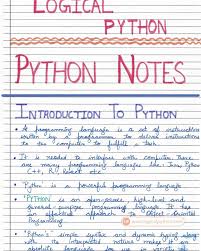 LOGICAL
PYTHON
PYTHON NOTES
INTRODUCTION TO PYTHON
A programming language is a set of instructions
written by a programmer to deliver instructions
to the computer to fulfill a task.
It is needed to interface with computer. There
are many programming languages like: Java, Python
C++, R, Robot etc.
Python is a powerful programming language
PYTHON is an open-source, high-level and
general-purpose programming language. It has
an effective approach Object-Oriented
Programming
Python's simple syntax and dynamic typing along
with interpreted nature make it an